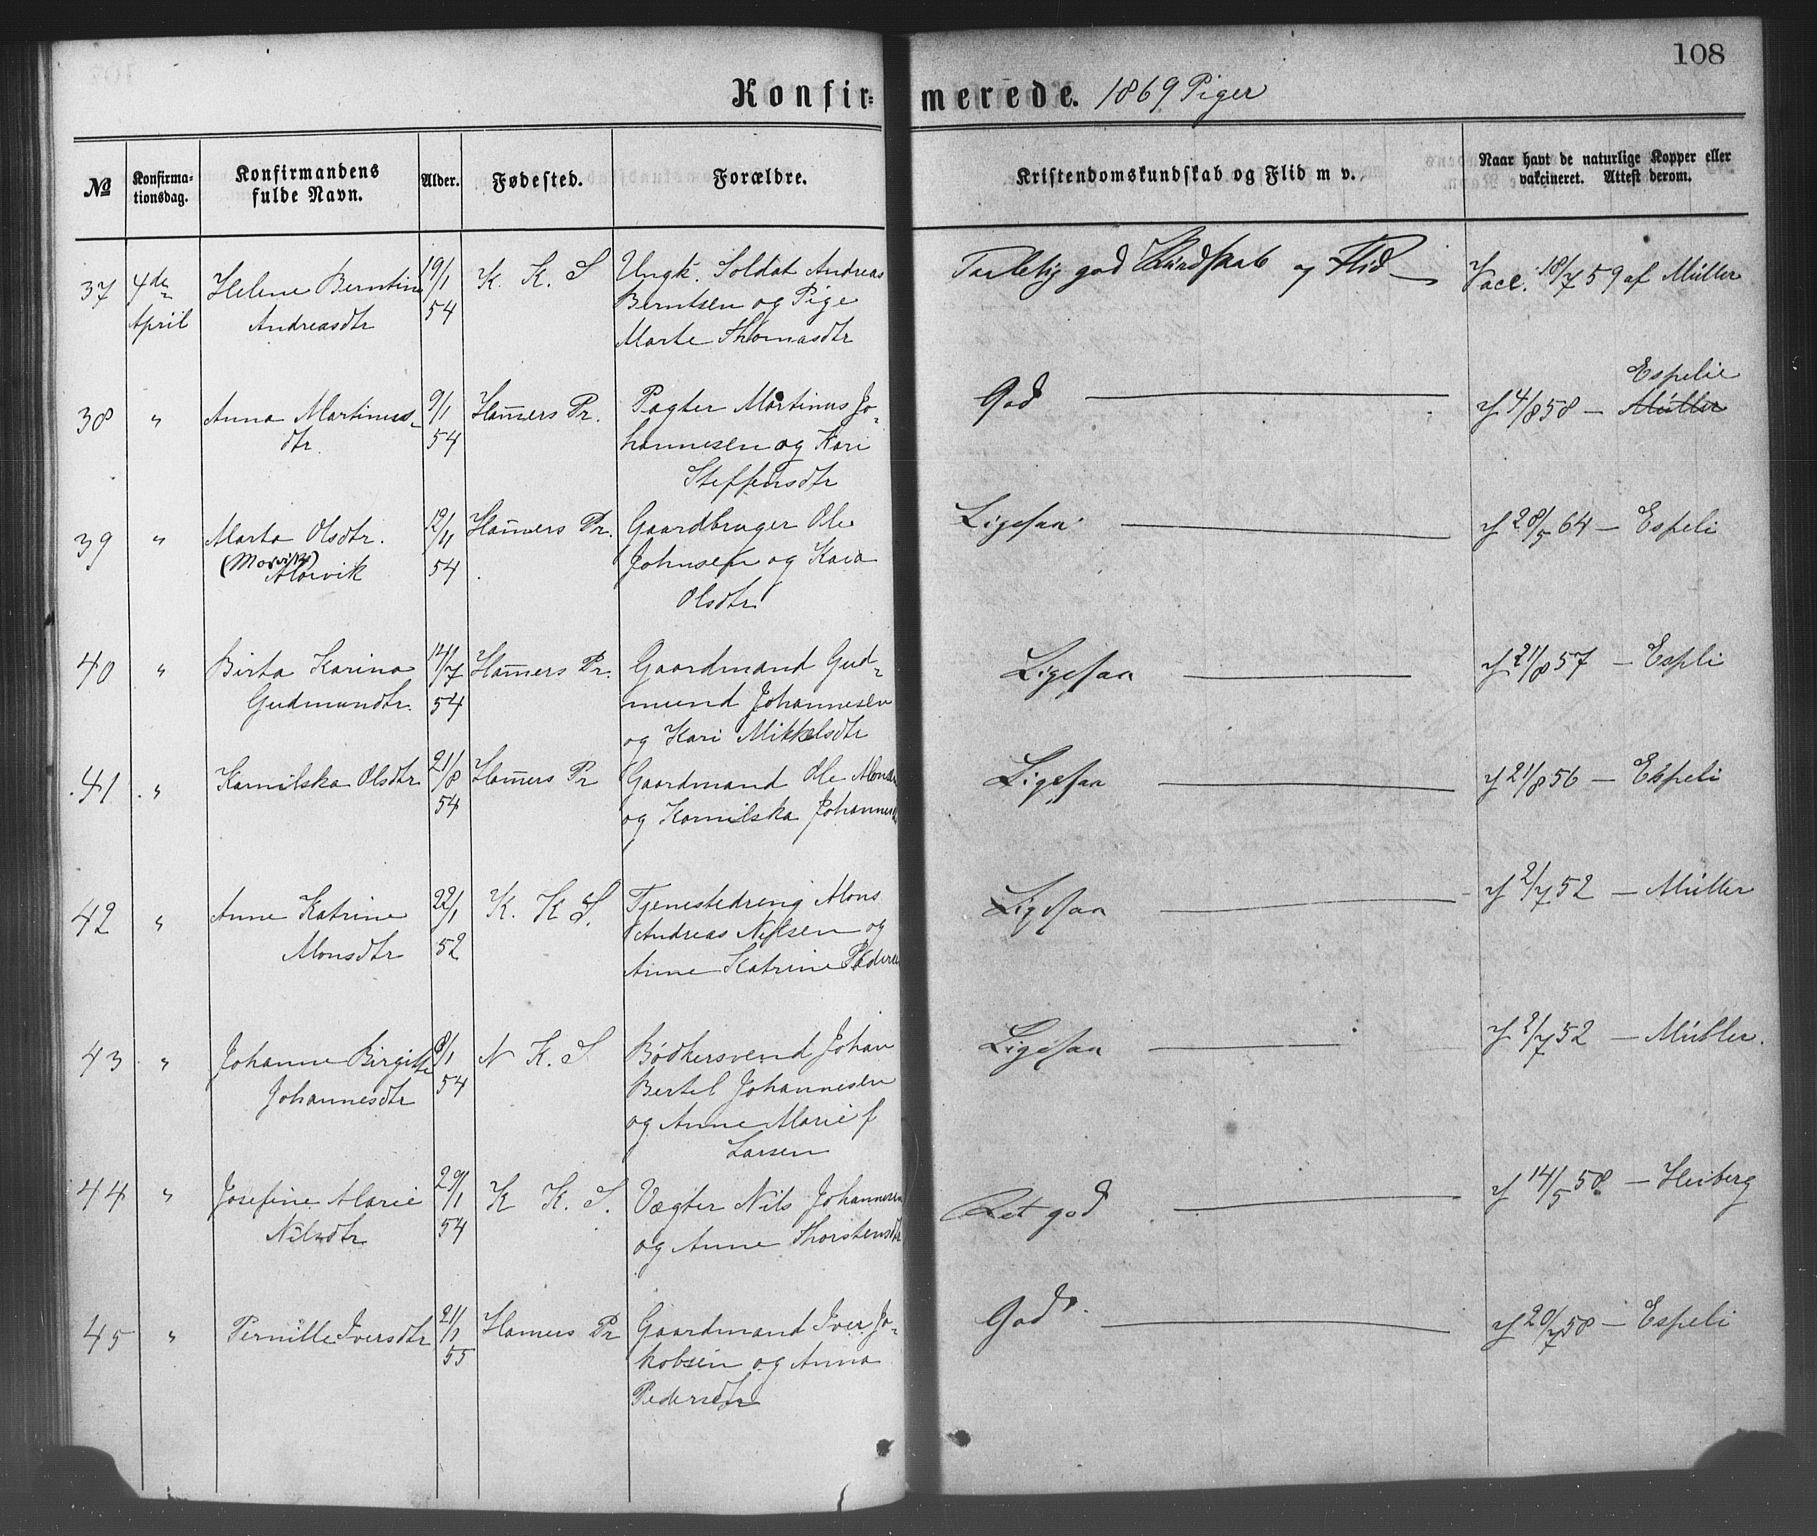 108
Konfirmerede. 1869 Piger
№ | Konfirmationsdag. | Konfirmandens fulde Navn. | Alder. | Fødested. | Forældre. | Kristendomskundskab og Flid m v. | Naar havt de naturlige Kopper eller vakcineret. Attest derom.
37 4de April Helene Berntine Andreasdtr 19/1 54 K. K. S Ungk. Soldat Andreas Berntsen og Pige Marte Thomasdtr Taalelig god Kundskab og Flid Vacc. 18/7 59 af Müller
38 " Anna Martinusdtr. 9/1 54 Ham̅ers Pr. Pagter Martinus Johannesen og Kari Steffensdtr God 4/8 58 – Müller Espelie
39 " Marta Olsdtr. (Morvik) Morvik 12/11 54 Ham̅ers Pr. Gaardbruger Ole Johnsen og Kara Olsdtr Ligesaa 28/5 64 – Espeli
40 " Birta Karina Gudmundtr. 14/7 54 Ham̅ers Pr. Gaardmand Gudmund Johannesen og Kari Mikkelsdtr Ligesaa 21/8 57 – Espli
41 " Kamilska Olsdtr 21/8 54 Ham̅ers Pr Gaardmand Ole og Kamilska Ligesaa 21/8 56 – Espeli
42 " Anne Katrine Monsdtr 22/1 52 K. K S. Tjenestedreng Mons Andreas Nilsen og Anne Katrine Ligesaa 2/7 52 – Müller
43 " Johanne Birgitte Johannesdtr 8/1 54 N K. S. Bødkersvend Johan Bertel Johannesen og Anne Marie f Larsen Ligesaa 2/7 52 – Müller.
44 " Josefine Marie Nilsdtr 29/1 54 K K. S. Vægter Nils Johannesen og Anne Thorstensdtr Ret god 14/5 58 – Heiberg
45 " Pernille Iversdtr 21/1 55 Hamers Pr Gaardmand Iver Jakobsen og Anna Pedersdtr God. 20/7 58 – Espeli